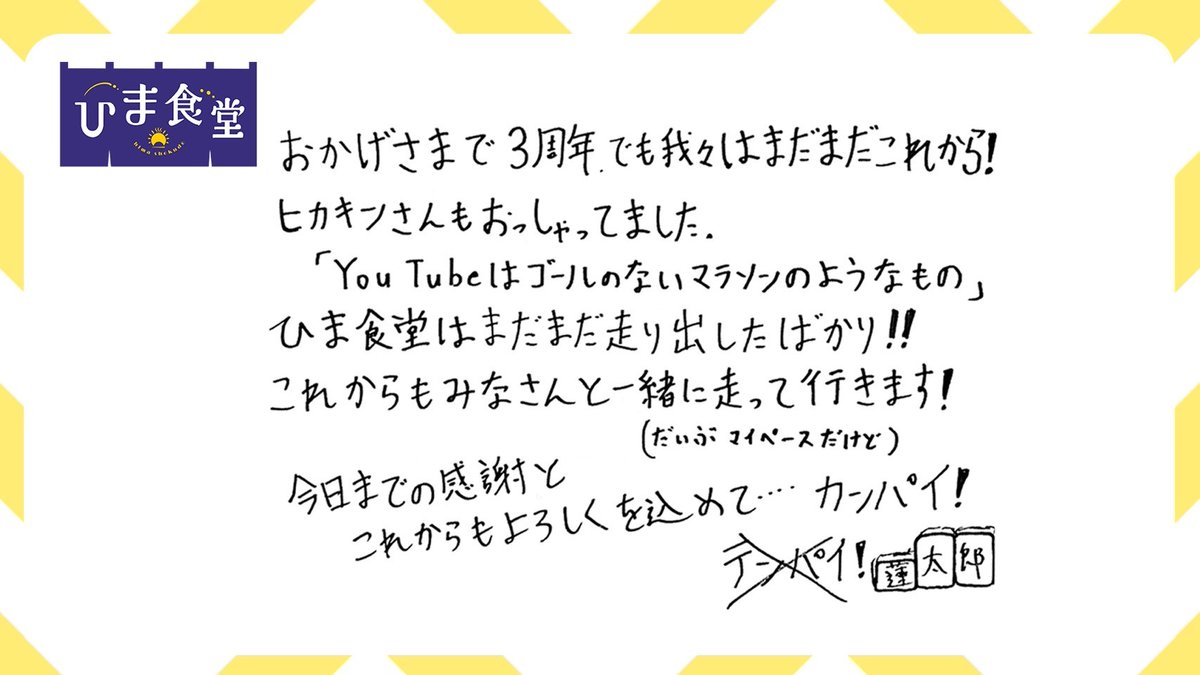 ひま食堂
hima shokudo
おかげさまで3周年.でも我々はまだまだこれから!
ヒカキンさんもおっしゃってました.
「YouTubeはゴールのないマラソンのようなもの」
ひま食堂はまだまだ走り出したばかり!!
これからもみなさんと一緒に走って行きます!
(だいぶマイペースだけど)
今日までの感謝と
これからもよろしくを込めて‥‥ カンパイ!
テンパイ! 蓮太郎